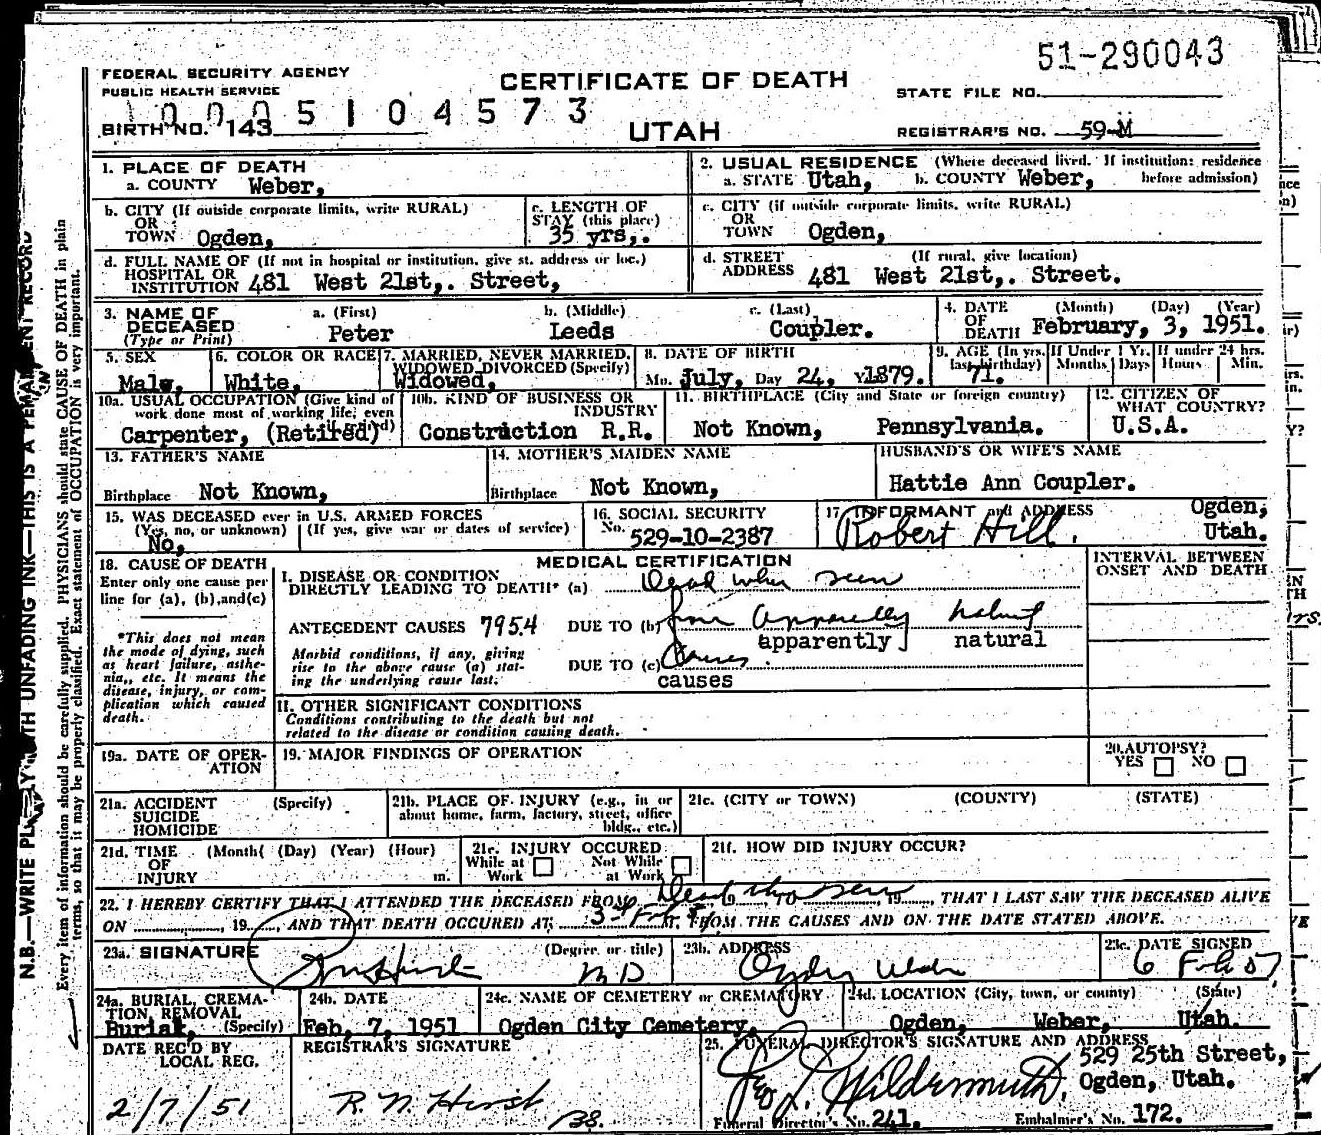 51-290043
FEDERAL SECURITY AGENCY
PUBLIC HEALTH SERVICE
CERTIFICATE OF DEATH
STATE FILE NO.
5 1 0 4 5 7 3
BIRTH NO. 143
UTAH
REGISTRAR'S NO. 59-M
1. PLACE OF DEATH
a. COUNTY Weber,
2. USUAL RESIDENCE (Where deceased lived. If institution: residence before admission)
a. STATE Utah, b. COUNTY Weber,
b. CITY (If outside corporate limits, write RURAL)
OR
TOWN Ogden,
c. LENGTH OF
STAY (this place)
35 yrs,.
c. CITY (if outside corporate limits, write RURAL)
OR
TOWN Ogden,
d. FULL NAME OF (If not in hospital or institution, give st. address or loc.)
HOSPITAL OR
INSTITUTION 481 West 21st,. Street,
d. STREET (If rural, give location)
ADDRESS 481 West 21st,. Street.
3. NAME OF
DECEASED
(Type or Print)
a. (First)
Peter
b. (Middle)
Leeds
c. (Last)
Coupler.
4. DATE (Month) (Day) (Year)
OF
DEATH February, 3, 1951.
5. SEX
Male.
6. COLOR OR RACE
White,
7. MARRIED, NEVER MARRIED,
WIDOWED, DIVORCED (Specify)
Widowed,
8. DATE OF BIRTH
Mo. July, Day 24, Y. 1879.
9. AGE (In yrs. last birthday)
71.
If Under 1 Yr.
Months Days
If under 24 hrs.
Hours Min.
10a. USUAL OCCUPATION (Give kind of
work done most of working life, even
if retired)
Carpenter, (Retired)
10b. KIND OF BUSINESS OR
INDUSTRY
Construction R.R.
11. BIRTHPLACE (City and State or foreign country)
Not Known, Pennsylvania.
12. CITIZEN OF
WHAT COUNTRY?
U.S.A.
13. FATHER'S NAME
Birthplace Not Known,
14. MOTHER'S MAIDEN NAME
Birthplace Not Known,
HUSBAND'S OR WIFE'S NAME
Hattie Ann Coupler.
15. WAS DECEASED ever in U.S. ARMED FORCES
(Yes, no, or unknown) (If yes, give war or dates of service)
No,
16. SOCIAL SECURITY
No. 529-10-2387
17. INFORMANT and ADDRESS
Robert Hill.
Ogden,
Utah.
18. CAUSE OF DEATH
Enter only one cause per
line for (a), (b), and (c)
*This does not mean
the mode of dying, such
as heart failure, asthe-
nia, etc. It means the
disease, injury, or com-
plication which caused
death.
MEDICAL CERTIFICATION
INTERVAL BETWEEN
ONSET AND DEATH
I. DISEASE OR CONDITION
DIRECTLY LEADING TO DEATH* (a) Dead when seen
ANTECEDENT CAUSES 795.4 DUE TO (b) from apparently natural
apparently natural
Morbid conditions, if any, giving
rise to the above cause (a) stat-
ing the underlying cause last.
DUE TO (c) Causes.
causes
II. OTHER SIGNIFICANT CONDITIONS
Conditions contributing to the death but not
related to the disease or condition causing death.
19a. DATE OF OPER-
ATION
19. MAJOR FINDINGS OF OPERATION
20. AUTOPSY?
YES NO
21a. ACCIDENT (Specify)
SUICIDE
HOMICIDE
21b. PLACE OF INJURY (e.g., in or
about home, farm, factory, street, office
bldg., etc.)
21c. (CITY or TOWN) (COUNTY) (STATE)
21d. TIME (Month( (Day) (Year) (Hour)
OF
INJURY m.
21e. INJURY OCCURED
While at Work Not While at Work
21f. HOW DID INJURY OCCUR?
22. I HEREBY CERTIFY THAT I ATTENDED THE DECEASED FROM Dead 19 TO seen, 19, THAT I LAST SAW THE DECEASED ALIVE
ON, 19, AND THAT DEATH OCCURED AT M., FROM THE CAUSES AND ON THE DATE STATED ABOVE.
23a. SIGNATURE (Degree or title)
M D
23b. ADDRESS
Ogden Utah
23c. DATE SIGNED
6 Feb 51
24a. BURIAL, CREMA-
TION, REMOVAL
Burial, (Specify)
24b. DATE
Feb, 7, 1951
24c. NAME OF CEMETERY or CREMATORY
Ogden City Cemetery,
24d. LOCATION (City, town, or county) (State)
Ogden, Weber, Utah.
DATE REC'D BY
LOCAL REG.
2/7/51
REGISTRAR'S SIGNATURE
R. N. Hirst
25. FUNERAL DIRECTOR'S SIGNATURE AND ADDRESS
Geo L. Wildermuth.
529 25th Street,
Ogden, Utah.
Funeral Director's No. 241. Embalmer's No. 172.
Every item of information should be carefully supplied. PHYSICIANS should state CAUSE OF DEATH in plain
terms, so that it may be properly classified. Exact statement of OCCUPATION is very important.